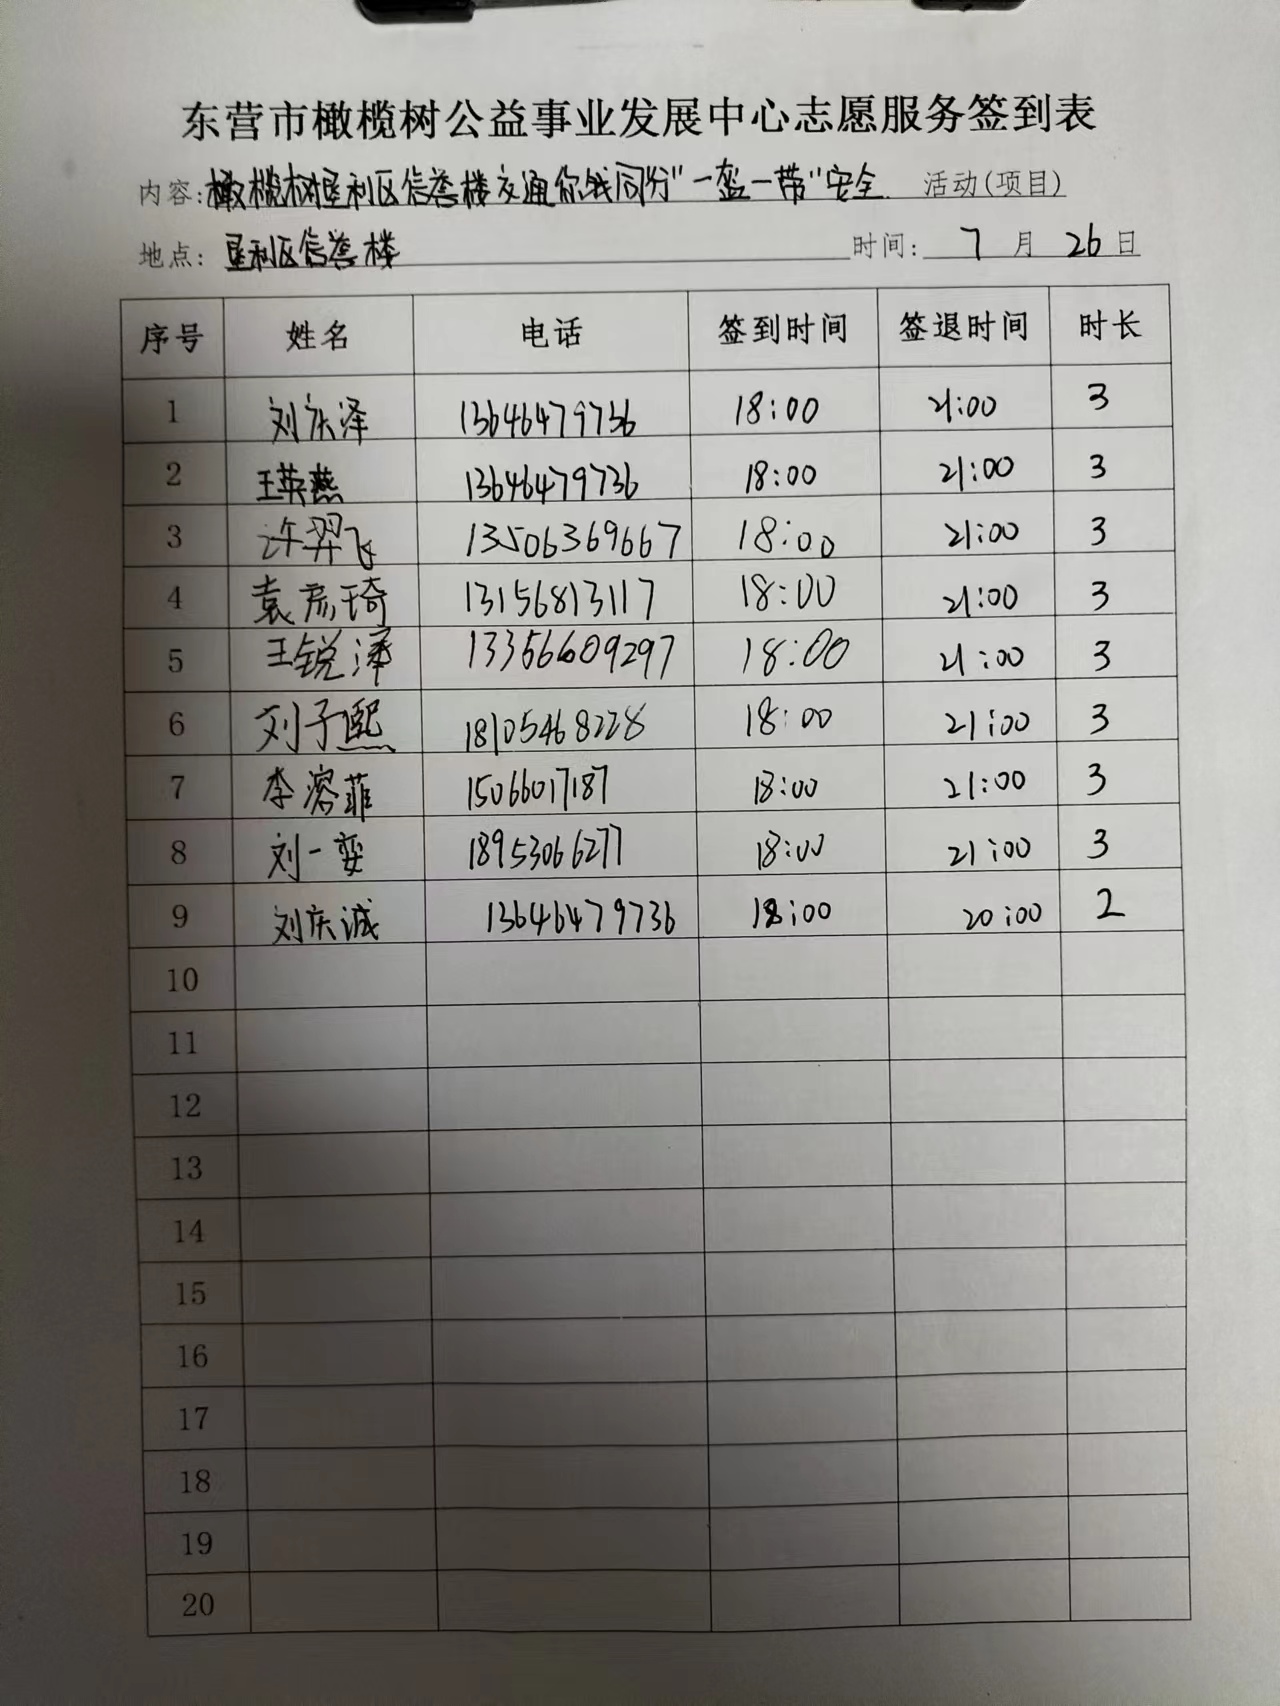 东营市橄榄树公益事业发展中心志愿服务签到表
内容:橄榄树垦利区信誉楼交通你我同行"一盔一带"安全 活动(项目)
地点: 垦利区信誉楼 时间: 7 月 26 日
序号 姓名 电话 签到时间 签退时间 时长
1 刘庆泽 13646479736 18:00 21:00 3
2 王英燕 13646479736 18:00 21:00 3
3 许羿飞 13506369667 18:00 21:00 3
4 袁彦琦 13156813117 18:00 21:00 3
5 王锐泽 13356609297 18:00 21:00 3
6 刘子熙 18105468228 18:00 21:00 3
7 李溶菲 15066017187 18:00 21:00 3
8 刘一奕 18953066277 18:00 21:00 3
9 刘庆诚 13646479736 18:00 20:00 2
10
11
12
13
14
15
16
17
18
19
20